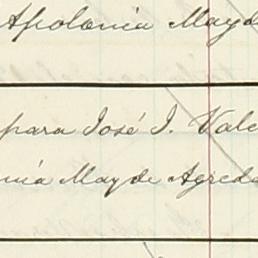 Apolonia Mayd
para José I. Vale
nia Mayde Agreda